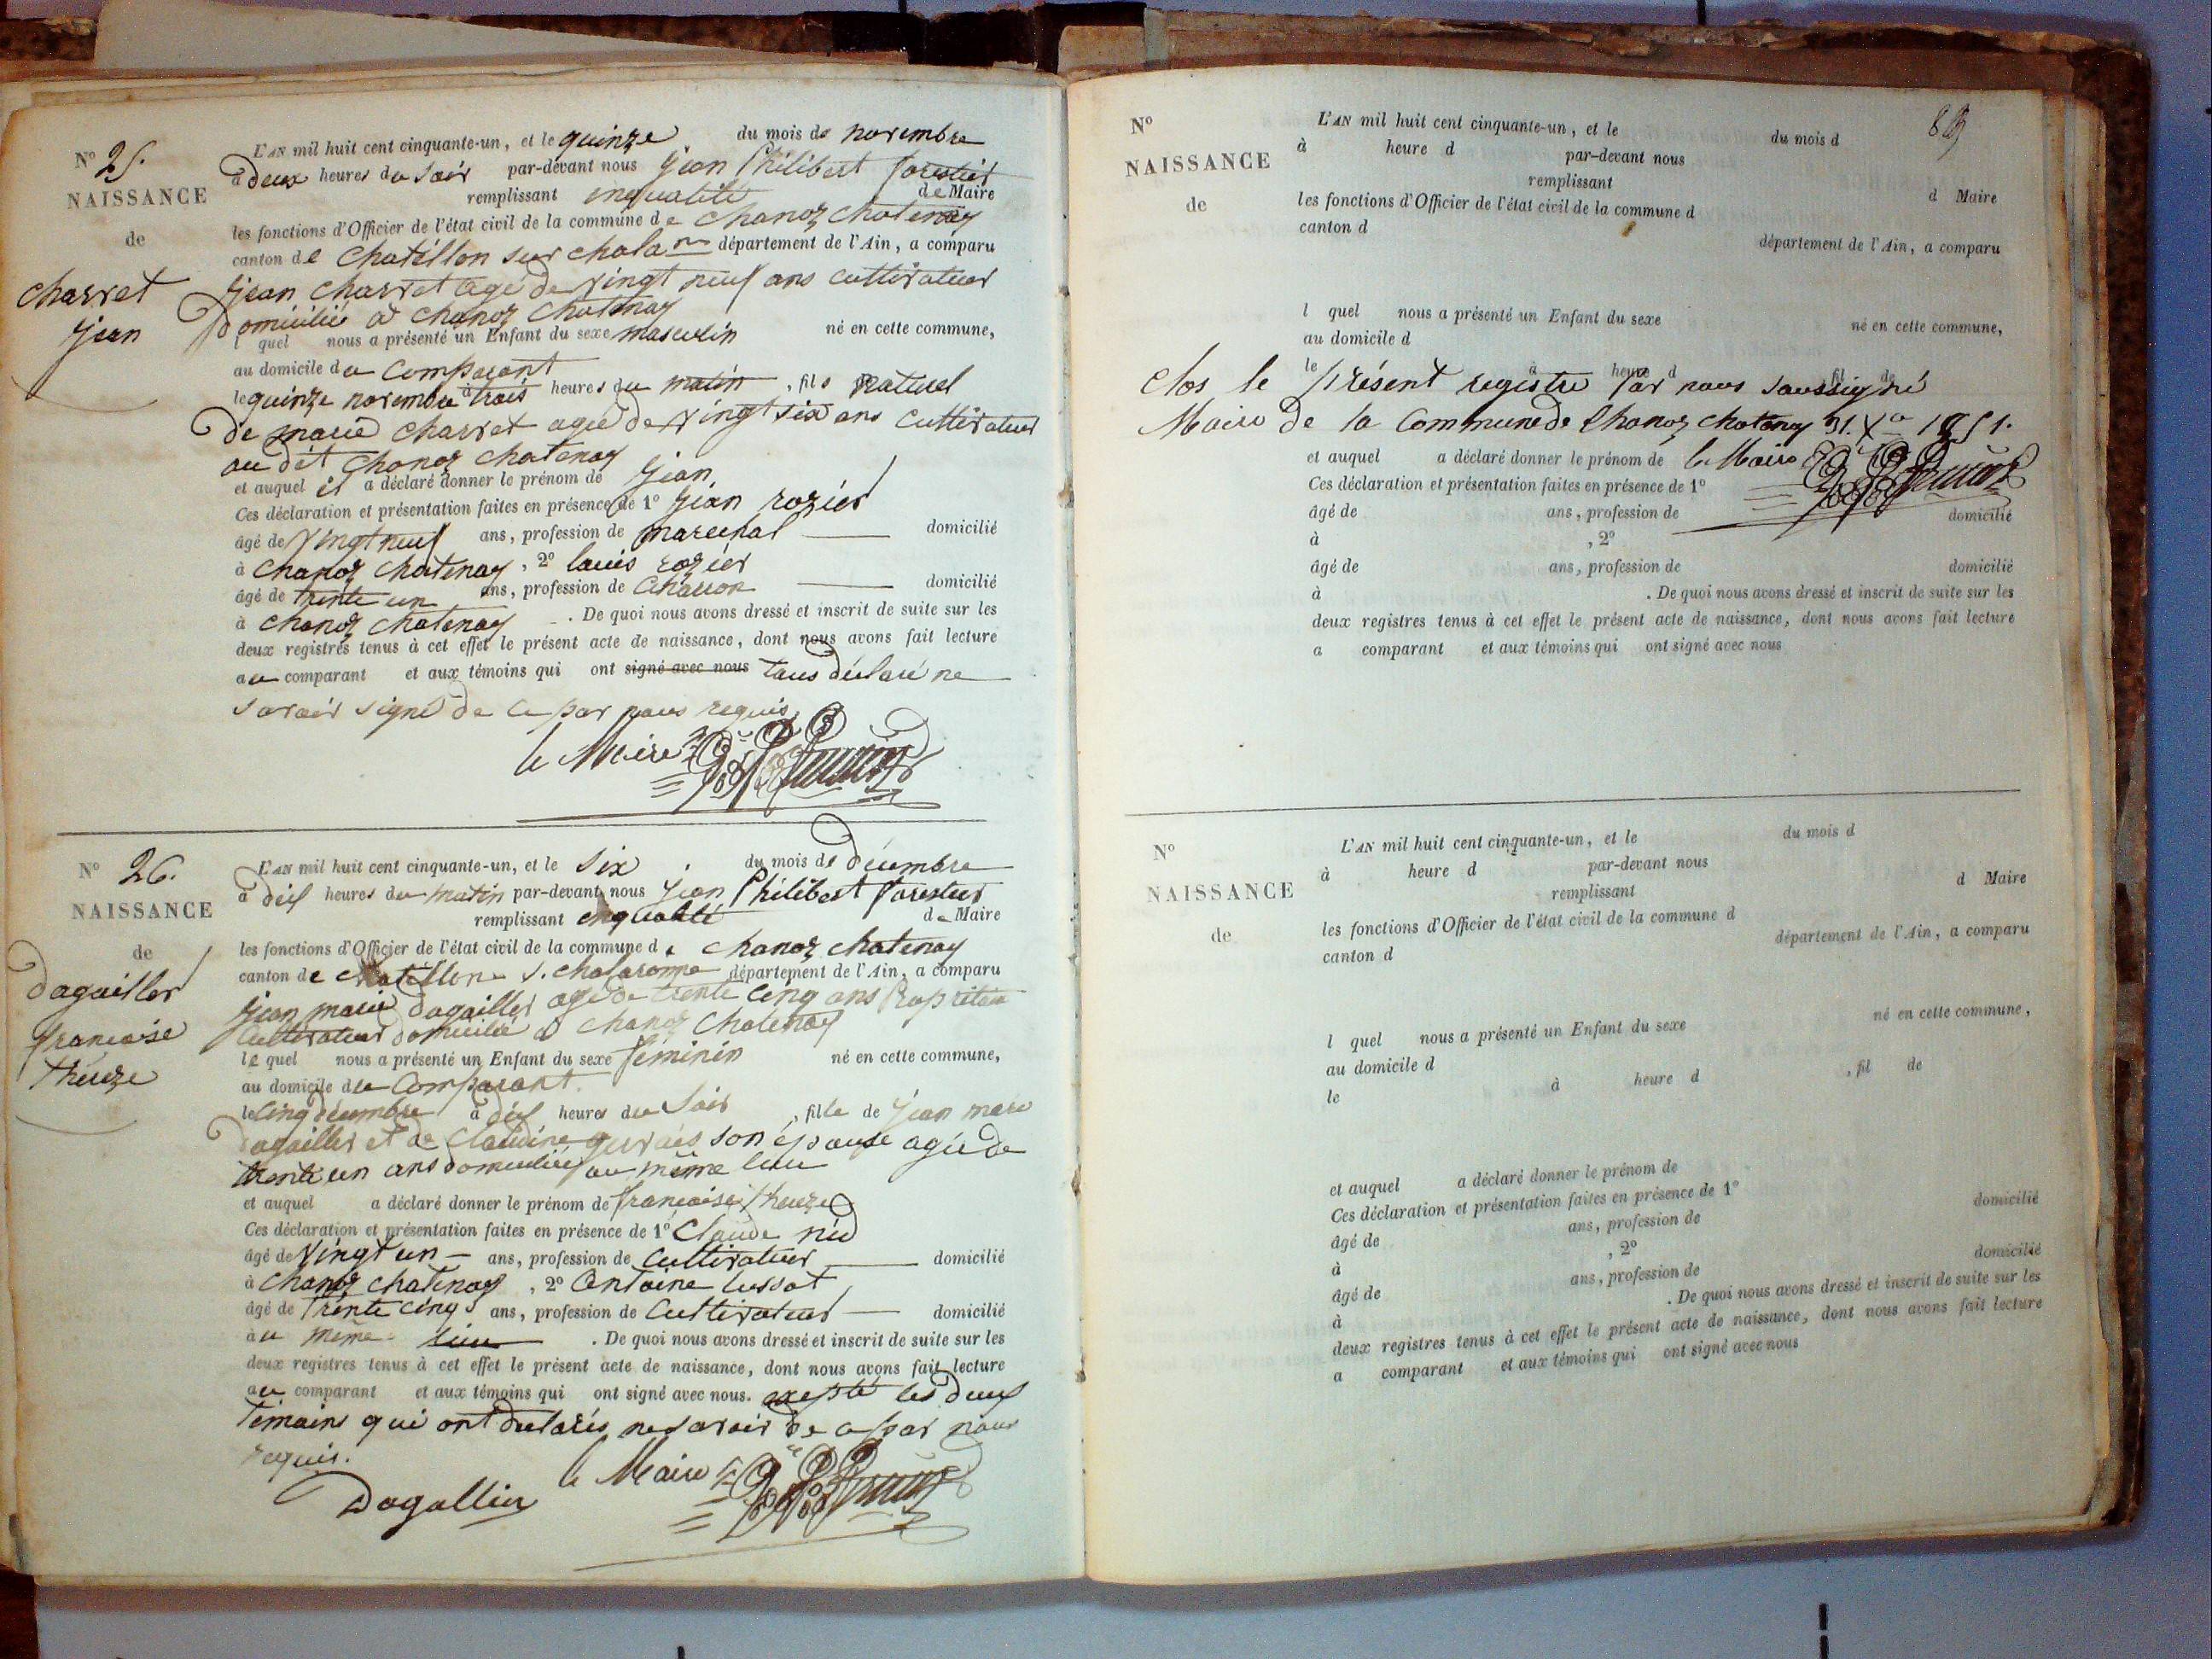 N° 25.
NAISSANCE
de
Charvet
jean
L'AN mil huit cent cinquante-un, et le quinze du mois de novembre
à deux heures du soir par-devant nous jean Philibert forestier
remplissant enqualité de Maire
les fonctions d'Officier de l'état civil de la commune de chanoz chatenay
canton de chatillon sur chalarne département de l'Ain, a comparu
jean charvet agé de vingt neuf ans cultivateur
domicilié a chanoz chatenay
l quel nous a présenté un Enfant du sexe masculin né en cette commune,
au domicile du comparant
le quinze novembre à trois heures du matin, fils naturel
de marie charvet agée de vingt six ans cultivateur
au dit chanoz chatenay
et auquel il a déclaré donner le prénom de jean
Ces déclaration et présentation faites en présence de 1° jean rozier
âgé de vingt neuf ans, profession de marechal domicilié
à chanoz chatenay, 2° louis rozier
âgé de trente un ans, profession de charron domicilié
à chanoz chatenay. De quoi nous avons dressé et inscrit de suite sur les
deux registres tenus à cet effet le présent acte de naissance, dont nous avons fait lecture
au comparant et aux témoins qui ont signé avec nous tous déclaré ne
savoir signé de ce par nous requis
le Maire
N° 26.
NAISSANCE
de
Dagailler
francoise
thereze
L'AN mil huit cent cinquante-un, et le six du mois de décembre
à dix heures du matin par-devant nous jean Philibert forestier
remplissant enqualité de Maire
les fonctions d'Officier de l'état civil de la commune de chanoz chatenay
canton de chatillon s. chalaronne département de l'Ain, a comparu
jean marie dagailler agé de trente cinq ans Propritaire
cultivateur domicilié a chanoz chatenay
le quel nous a présenté un Enfant du sexe féminin né en cette commune,
au domicile du comparant.
le cinq décembre à dix heures du soir, fille de jean marie
dagailler et de claudine gervais son épouse agée de
trente un ans domiciliée au même lieu
et auquel a déclaré donner le prénom de francoise thereze
Ces déclaration et présentation faites en présence de 1° Claude
âgé de vingt un ans, profession de cultivateur domicilié
à chanoz chatenay, 2° Antoine
âgé de trente cinq ans, profession de cultivateur domicilié
au même lieu. De quoi nous avons dressé et inscrit de suite sur les
deux registres tenus à cet effet le présent acte de naissance, dont nous avons fait lecture
au comparant et aux témoins qui ont signé avec nous. excepté les deux
témoins qui ont declarés ne savoir de ce par nous
requis.
Dagallier le Maire
89
N°
NAISSANCE
de
L'AN mil huit cent cinquante-un, et le du mois d
à heure d par-devant nous
remplissant d Maire
les fonctions d'Officier de l'état civil de la commune d
canton d département de l'Ain, a comparu
l quel nous a présenté un Enfant du sexe né en cette commune,
au domicile d
le à heure d fil de
Clos le présent registre par nous soussigné
Maire de la Commune de Chanoz chatenay 31. Xre 1851.
et auquel a déclaré donner le prénom de le Maire
Ces déclaration et présentation faites en présence de 1°
âgé de ans, profession de domicilié
à , 2°
âgé de ans, profession de domicilié
à . De quoi nous avons dressé et inscrit de suite sur les
deux registres tenus à cet effet le présent acte de naissance, dont nous avons fait lecture
a comparant et aux témoins qui ont signé avec nous
N°
NAISSANCE
de
L'AN mil huit cent cinquante-un, et le du mois d
à heure d par-devant nous
remplissant d Maire
les fonctions d'Officier de l'état civil de la commune d
canton d département de l'Ain, a comparu
l quel nous a présenté un Enfant du sexe né en cette commune,
au domicile d
le à heure d , fil de
et auquel a déclaré donner le prénom de
Ces déclaration et présentation faites en présence de 1°
âgé de ans, profession de domicilié
à , 2°
âgé de ans, profession de domicilié
à . De quoi nous avons dressé et inscrit de suite sur les
deux registres tenus à cet effet le présent acte de naissance, dont nous avons fait lecture
a comparant et aux témoins qui ont signé avec nous